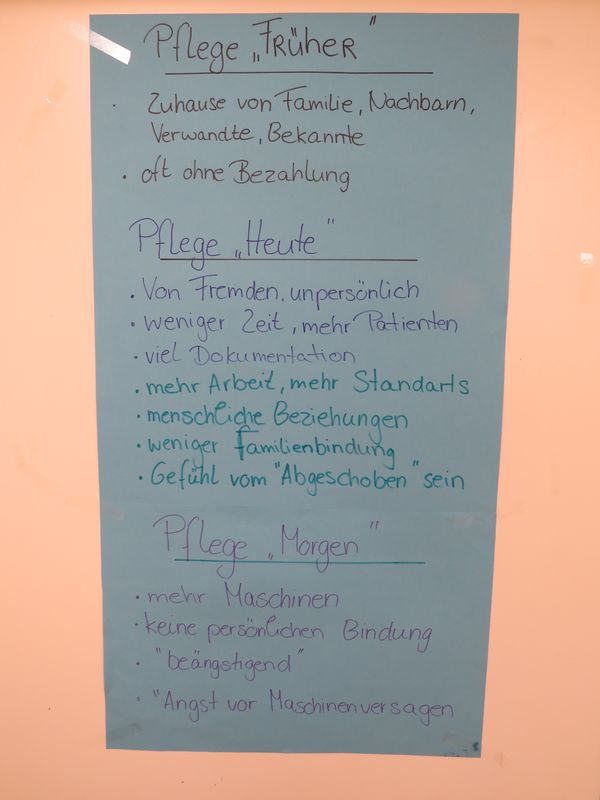 Pflege „FRÜHER"
· Zuhause von Familie, Nachbarn,
Verwandte, Bekannte
· oft ohne Bezahlung
Pflege „Heute"
· Von Fremden, unpersönlich
· weniger Zeit, mehr Patienten
· viel Dokumentation
· mehr Arbeit, mehr Standarts
· menschliche Beziehungen
· weniger Familienbindung
· Gefühl vom "Abgeschoben" sein
Pflege „Morgen"
· mehr Maschinen
· keine persönlichen Bindung
· "beängstigend"
· "Angst vor Maschinenversagen